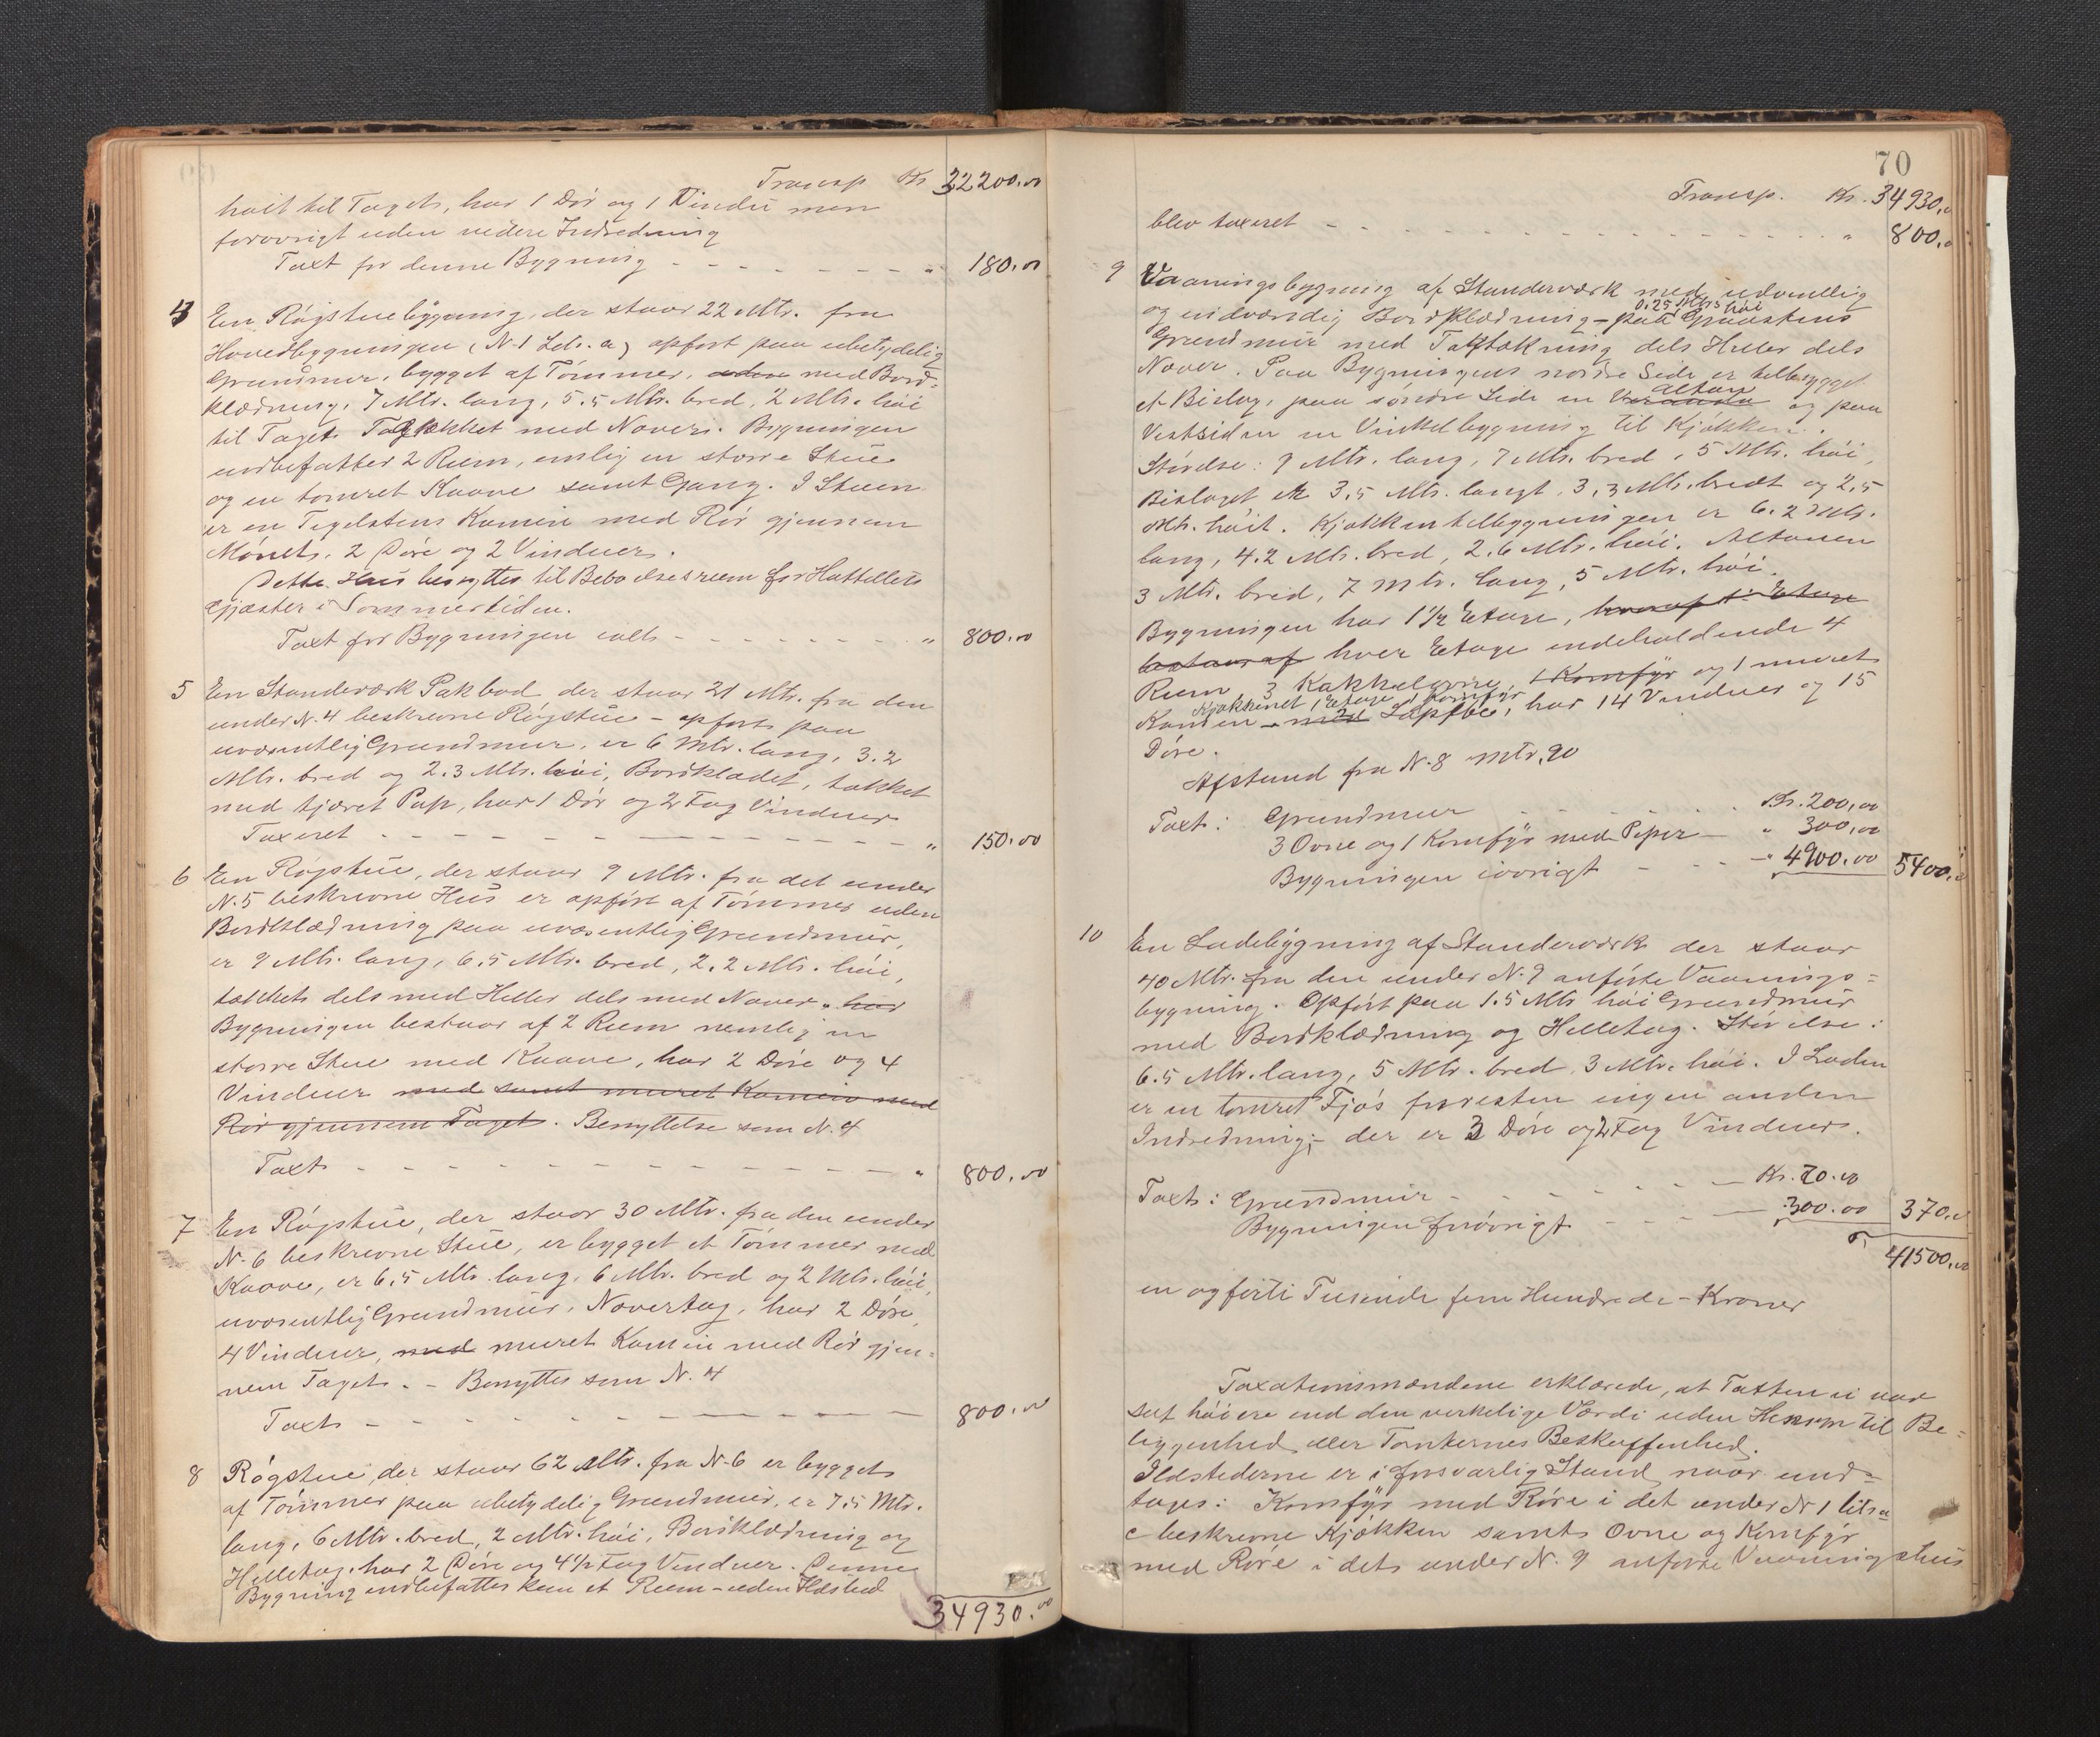 Transp Kr 32200.00
høit til Taget, har 1 Dør og 1 Vindu men
forøvrigt uden videre Indredning
Taxt for denne Bygning - - - - - - - " 180.00
4 En Røgstuebygning, der staar 22 Mtr. fra
Hovedbygningen (N. 1 Litr. a) opført paa ubetydelig
Grundmur, bygget af Tømmer, uden med Bord-
klædning, 7 Mtr. lang, 5.5 Mtr. bred, 2 Mtr. høi
til Taget. Tagtækket med Never. Bygningen
indbefatter 2 Rum, nemlig en større Stue
og en tømret Kaave samt Gang. I Stuen
er en Tegelstens Kamin med Rør gjennem
Mønet, 2 Døre og 2 Vinduer.
Dette Hus benyttes til Beboelsesrum for Hotellets
Gjæster i Sommertiden.
Taxt for Bygningen ialt - - - - - - - " 800.00
5 En Standerværk Pakbod der staar 21 Mtr. fra den
under N. 4 beskrevne Røgstue - opført paa
uvæsentlig Grundmur, er 6 Mtr. lang, 3.2
Mtr. bred og 2.3 Mtr. høi, Bordklædet, tækket
med tjæret Pap, har 1 Dør og 2 Fag Vinduer
Taxeret - - - - - - - - - - " 150.00
6 En Røgstue, der staar 9 Mtr. fra det under
N. 5 beskrevne Hus er opført af Tømmer uden
Bordklædning paa uvæsentlig Grundmur,
er 9 Mtr. lang, 6.5 Mtr. bred, 2.2 Mtr. høi,
tækket dels med Heller dels med Never. har
Bygningen bestaar af 2 Rum nemlig en
større Stue med Kaave, har 2 Døre og 4
Vinduer med samt muret Kamin med
Rør gjennem Taget. Benyttelse som N. 4
Taxt - - - - - - - - - - - " 800.00
7 En Røgstue, der staar 30 Mtr. fra den under
N. 6 beskrevne Stue, er bygget af Tømmer med
Kaave, er 6.5 Mtr. lang, 6 Mtr. bred og 2 Mtr. høi,
uvæsentlig Grundmur, Nevertag, har 2 Døre,
4 Vinduer, med muret Kamin med Rør gjen-
nem Taget. - Benyttes som N. 4
Taxt - - - - - - - - - - 800.00
8 Røgstue, der staar 62 Mtr. fra N. 6 er bygget
af Tømmer paa ubetydelig Grundmur, er 7.5 Mtr.
lang, 6 Mtr. bred, 2 Mtr. høi, Bordklædning og
Helletag, har 2 Døre og 4 1/2 Fag Vinduer. Denne
Bygning indbefatter kun et Rum - uden Ildsted
34930.00
70
Transp. Kr. 34930.
blev taxeret - - - - - - - - - - - - " 800.
9 Vaaningsbygning af Standerværk med udvendig
0.25 Mtr. høi
og indvendig Bordklædning - paa Graastens
Grundmur med Tagtækning dels Heller dels
Never. Paa Bygningens nordre Side er tilbygget
Altan
et Bislag, paa søndre Side en Veranda og paa
Vestsiden en Vinkelbygning til Kjøkken.
Størrelse: 9 Mtr. lang, 7 Mtr. bred, 5 Mtr. høi,
Bislaget er 3.5 Mtr. langt, 3.3 Mtr. bredt og 2.5
Mtr. høit. Kjøkkentilbygningen er 6.2 Mtr.
lang, 4.2 Mtr. bred, 2.6 Mtr. høi. Altanen
3 Mtr. bred, 7 Mtr. lang, 5 Mtr. høi.
Bygningen har 1 1/2 Etage, hvoraf 1. Etage
bestaar af hver Etage indeholdende 4
Rum, 3 Kakkelovne, 1 Komfyr og 1 muret
Kjøkkenet 1 Etage, 1 Komfyr
Kamin - med har 14 Vinduer og 15
Døre.
Afstand fra N. 8 Mtr. 90
Taxt: Grundmur - - - - - Kr. 200.00
3 Ovne og 1 Komfyr med Piper - " 300.00
Bygningen iøvrigt - - - - " 4900.00 5400.
10 En Ladebygning af Standerværk der staar
40 Mtr. fra den under N. 9 anførte Vaanings-
bygning. Opført paa 1.5 Mtr høi Grundmur
med Bordklædning og Helletag. Størrelse:
6.5 Mtr. lang, 5 Mtr. bred, 3 Mtr. høi. I Laden
er en tømret Fjøs forresten ingen anden
Indredning; - der er 3 Døre og 2 Fag Vinduer.
Taxt: Grundmur - - - - - - Kr. 70.00
Bygningen forøvrigt - - - - 300.00 370.
41500.00
en og førti Tusinde fem Hundrede - Kroner
Taxationsmændene erklærede, at Taxten ei var
sat høiere end den virkelige Værdi uden Hensyn til Be-
liggenhed eller Tomternes Beskaffenhed.
Ildstederne er i forsvarlig Stand naar und-
tages: Komfyr med Røre i det under N 1 litra
c beskrevne Kjøkken samt Ovne og Komfyr
med Røre i det under N. 9 anførte Vaaningshus